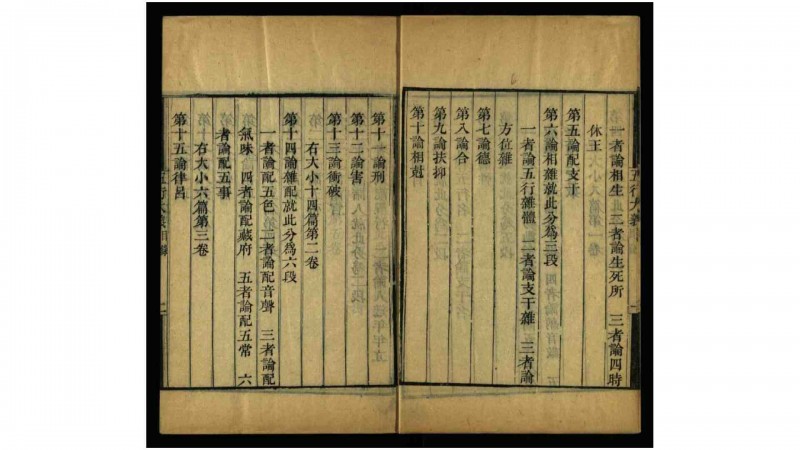 一者論相生 二者論生死所 三者論四時
休王
第五論配支干
第六論相雜就此分爲三段
一者論五行雜體 二者論支干雜 三者論
方位雜
第七論德
第八論合
第九論扶抑
第十論相尅
五行大義
第十一論刑
第十二論害
第十三論衝破
右大小十四篇第二卷
第十四論雜配就此分爲六段
一者論配五色 二者論配音聲 三者論配
氣味 四者論配藏府 五者論配五常 六
者論配五事
右大小六篇第三卷
第十五論律呂